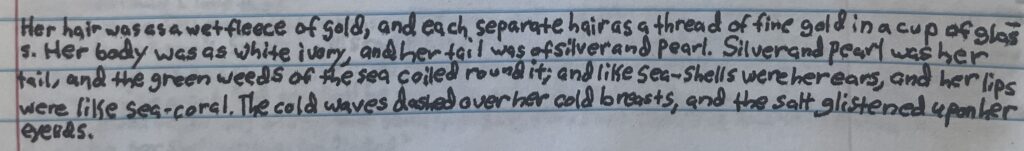 Her hair was as a wet fleece of gold, and each separate hair as a thread of fine gold in a cup of glas-
s. Her body was as white ivory, and her tail was of silver and pearl. Silver and pearl was her
tail, and the green weeds of the sea coiled round it; and like sea-shells were her ears, and her lips
were like sea-coral. The cold waves dashed over her cold breasts, and the salt glistened upon her
eyelids.